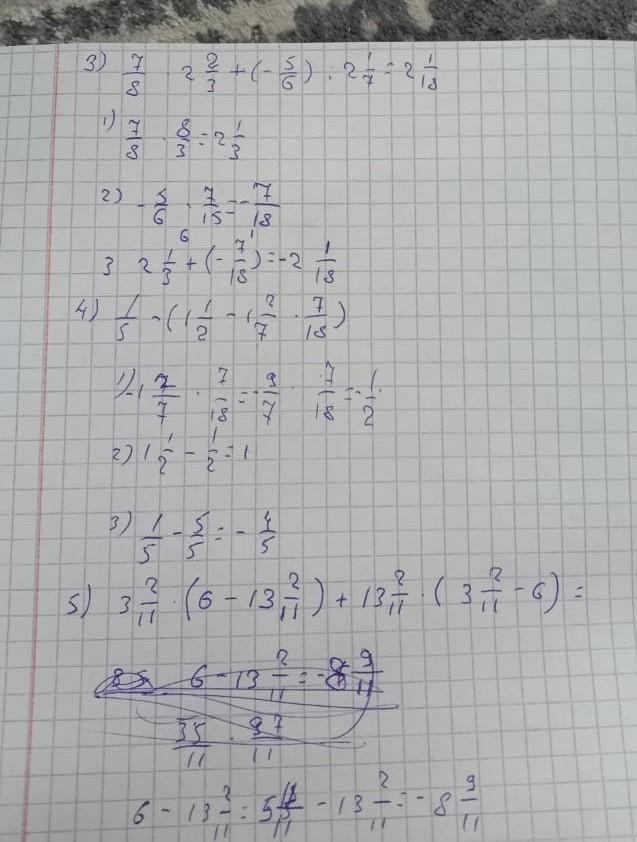 3) 7/8 · 2 2/3 + (- 5/6) : 2 1/7 = 2 1/18
1) 7/8 · 8/3 = 2 1/3
2) - 5/6 · 7/15 = - 7/18
3 2 1/3 + (- 7/18) = -2 1/18
4) 1/5 - (1 1/2 - 1 2/7 · 7/18)
1) -1 2/7 · 7/18 = - 9/7 · 7/18 = - 1/2
2) 1 1/2 - 1/2 = 1
3) 1/5 - 5/5 = - 4/5
5) 3 2/11 · (6 - 13 2/11) + 13 2/11 · (3 2/11 - 6) =
6 - 13 2/11 = -8 9/11
35/11 · 97/11
6 - 13 2/11 = 5 11/11 - 13 2/11 = - 8 9/11